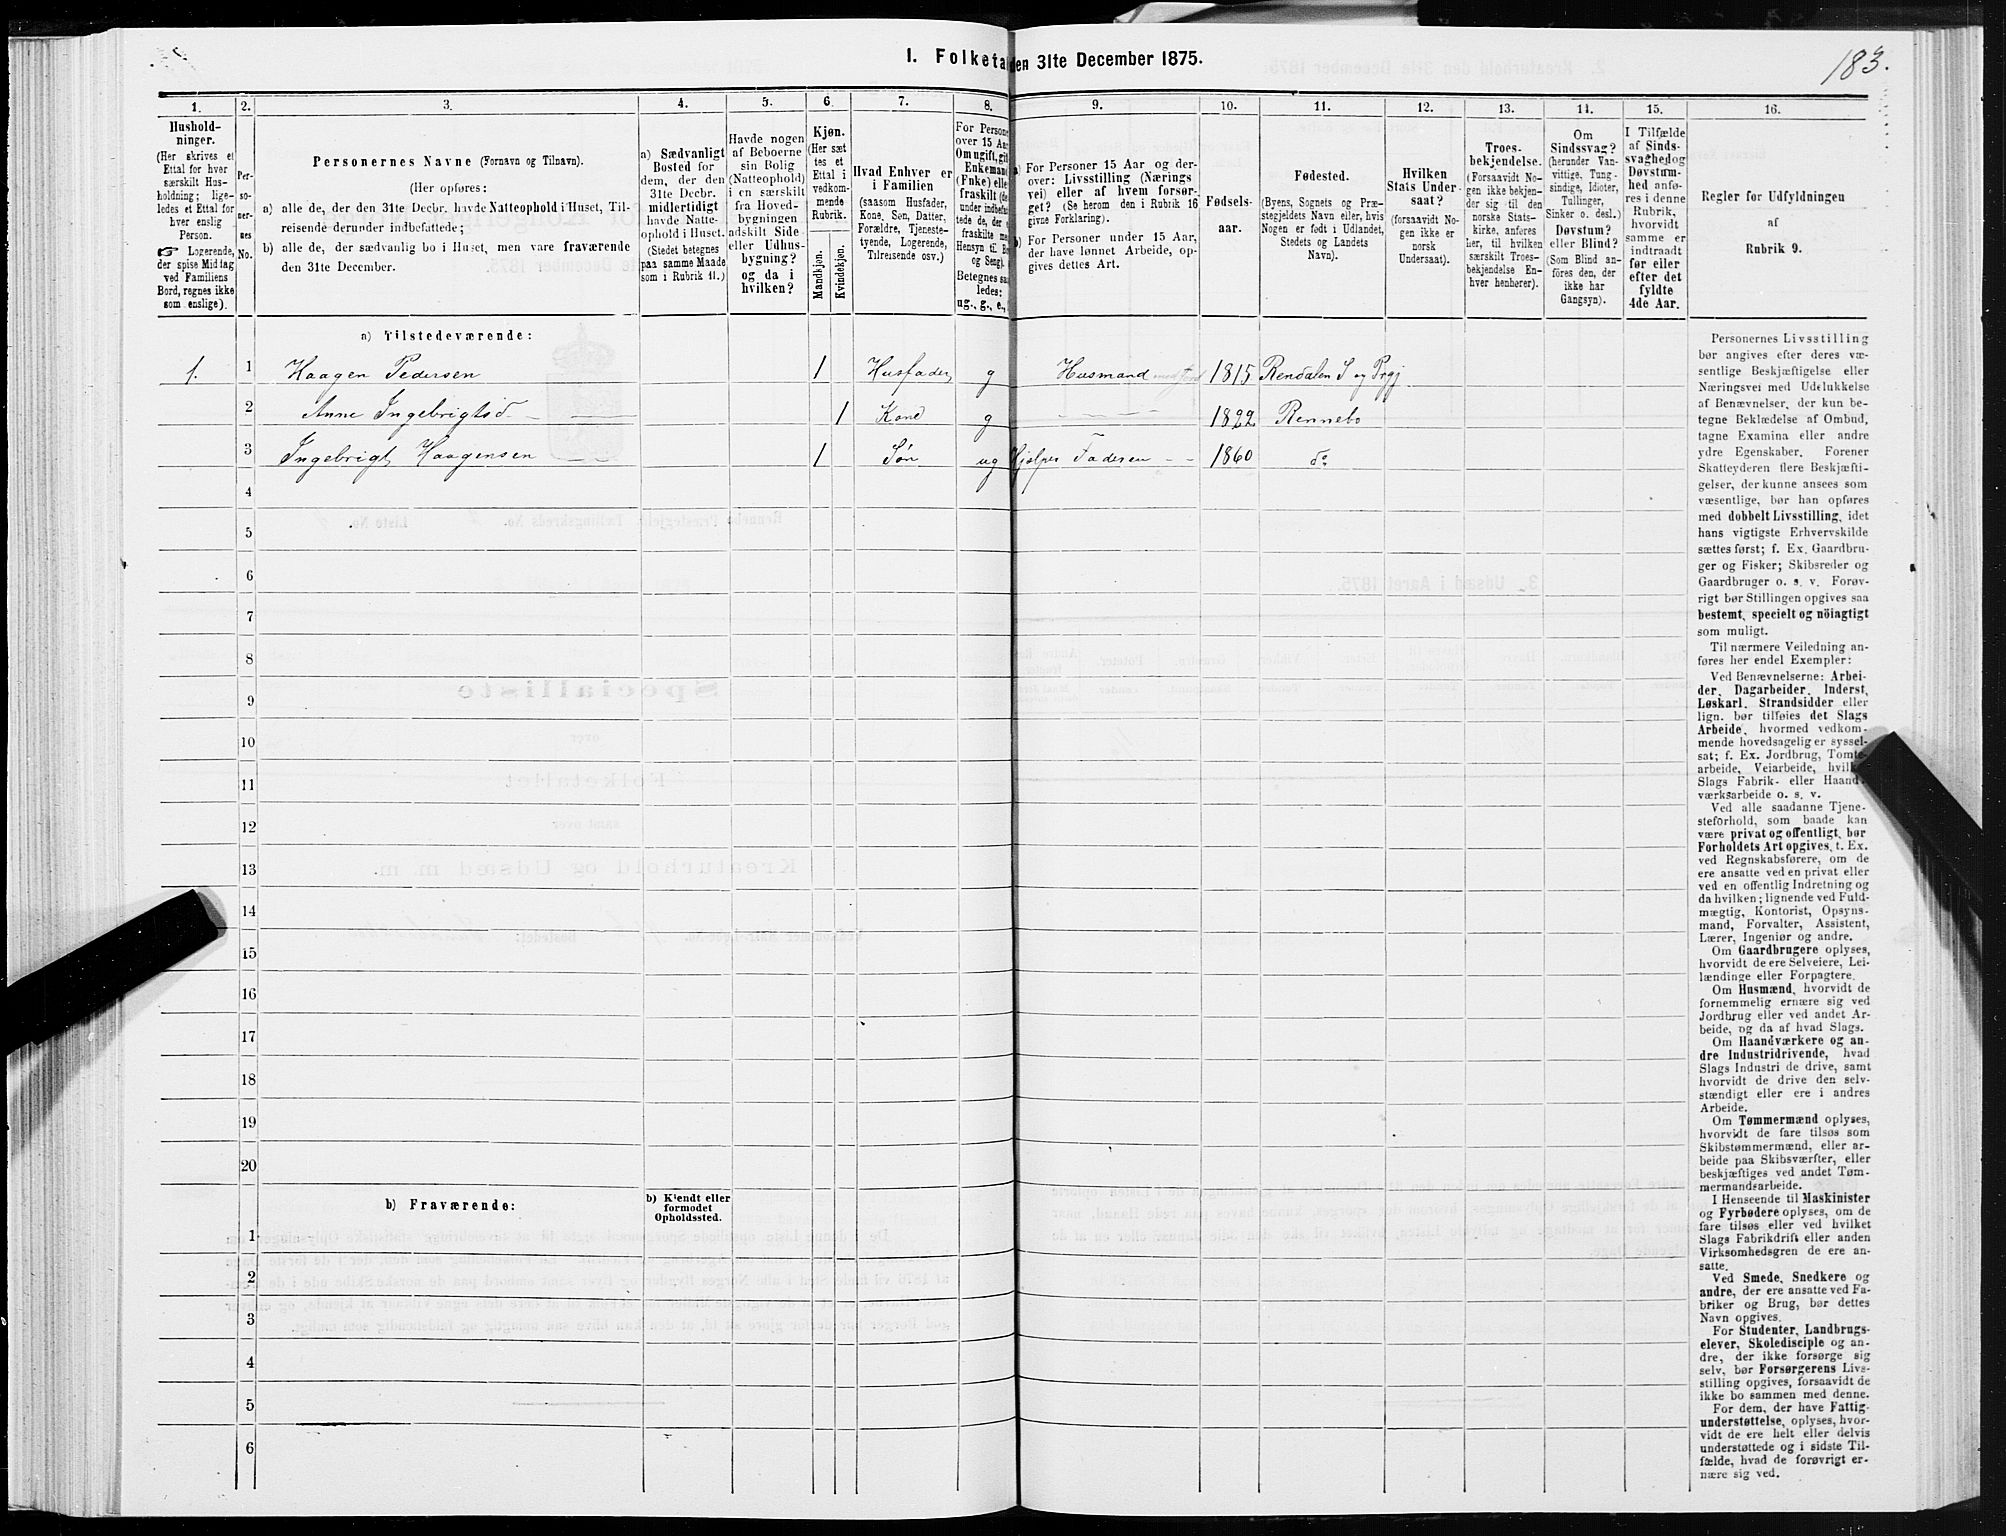 183.
I. Folketa den 31te December 1875.
1. 2. 3. 4. 5. 6. 7. 8. 9. 10. 11. 12. 13. 14. 15. 16.
Hushold-
ninger.
(Her skrives et
Ettal for hver
særskilt Hus-
holdning; lige-
ledes et Ettal for
hver enslig
Person.
☞ Logerende,
der spise Middag
ved Familiens
Bord, regnes ikke
som enslige).
Per-
so-
ner-
nes
No.
Personernes Navne (Fornavn og Tilnavn).
(Her opføres:
a) alle de, der den 31te Decbr. havde Natteophold i Huset, Til-
reisende derunder indbefattede;
b) alle de, der sædvanlig bo i Huset, men vare fraværende
den 31te December.
a) Sædvanligt
Bosted for
dem, der den
31te Decbr.
midlertidigt
havde Natte-
ophold i Huset.
(Stedet betegnes
paa samme Maade
som i Rubrik 11.)
Havde nogen
af Beboerne
sin Bolig
(Natteophold)
i en særskilt
fra Hoved-
bygningen
adskilt Side
eller Udhus-
bygning?
og da i
hvilken?
Kjøn.
(Her sæt
tes et
Ettal i
vedkom-
mende
Rubrik.
Mandkjøn.
Kvindekjøn.
Hvad Enhver er
i Familien
(saasom Husfader,
Kone, Søn, Datter,
Forældre, Tjeneste-
tyende, Logerende,
Tilreisende osv.)
For Persone
over 15 Aa
Om ugift, gif
Enkemand
(Enke) elle
fraskilt (de
under indbefat
tede de, der e
fraskilte me
Hensyn til. Bo
og Seng).
Betegnes saa
ledes:
ug., g., e.,
a) For Personer 15 Aar og der-
over: Livsstilling (Nærings
vei) eller af hvem forsør-
get? (Se herom den i Rubrik 16
givne Forklaring).
b) For Personer under 15 Aar,
der have lønnet Arbeide, op-
gives dettes Art.
Fødsels-
aar.
Fødested.
(Byens, Sognets og Præ-
stegjeldets Navn eller, hvis
Nogen er født i Udlandet,
Stedets og Landets
Navn).
Hvilken
Stats Under-
saat?
(forsaavidt No-
gen ikke er
norsk
Undersaat).
Troes-
bekjendelse.
(Forsaavidt No-
gen ikke bekjen-
der sig til den
norske Stats-
kirke, anføres
her, til hvilken
særskilt Troes-
bekjendelse En-
hver henhører).
Om
Sindssvag?
(herunder Van-
vittige, Tung-
sindige, Idioter,
Tullinger,
Sinker o. desl.)
Døvstum?
eller Blind?
(Som Blind an-
føres den, der
ikke har
Gangsyn).
I Tilfælde
af Sinds-
svaghed og
Døvstum-
hed anfø-
res i denne
Rubrik,
hvorvidt
samme er
indtraadt
før eller
efter det
fyldte
4de Aar.
Regler for Udfyldningen
af
Rubrik 9.
a) Tilstedeværende:
1. 1 Haagen Pedersen 1 Husfader g Husmand med Jord 1815 Rendalen S og Prgj
2 Anne Ingebrigtsd - 1 Kone g 1822 Rennebo
3 Ingebrigt Haagensen 1 Søn ug Hjelper Faderen - - 1860 do
4
5
6
7
8
9
10
11
12
13
14
15
16
17
18
19
20
b) Fraværende: b) Kjendt eller
formodet
Opholdssted.
1
2
3
4
5
6
Personernes Livsstilling
bør angives efter deres væ-
sentlige Beskjæftigelse eller
Næringsvei med Udelukkelse
af Benævnelser, der kun be-
tegne Beklædelse af Ombud,
tagne Examina eller andre
ydre Egenskaber. Forener
Skatteyderen flere Beskjæfti-
gelser, der kunne ansees som
væsentlige, bør han opføres
med dobbelt Livsstilling, idet
hans vigtigste Erhvervskilde
sættes først; f. Ex. Gaardbru-
ger og Fisker; Skibsreder og
Gaardbruger o. s. v. Forøv-
rigt bør Stillingen opgives saa
bestemt, specielt og nöiagtigt
som muligt.
Til nærmere Veiledning an-
føres her endel Exempler:
Ved Benævnelserne: Arbei-
der, Dagarbeider, Inderst,
Løskarl, Strandsidder eller
lign. bør tilføies det Slags
Arbeide, hvormed vedkom-
mende hovedsagelig er syssel-
sat; f. Ex. Jordbrug, Tomte-
arbeide, Veiarbeide, hvilket
Slags Fabrik- eller Haand-
værksarbeide o. s. v.
Ved alle saadanne Tjene-
steforhold, som baade kan
være privat og offentligt, bør
Forholdets Art opgives, t. Ex.
ved Regnskabsførere, om de
ere ansatte ved en privat eller
ved en offentlig Indretning og
da hvilken; lignende ved Fuld-
mægtig, Kontorist, Opsyns-
mand, Forvalter, Assistent,
Lærer, Ingeniør og andre.
Om Gaardbrugere oplyses,
hvorvidt de ere Selveiere, Lei-
lændinge eller Forpagtere.
Om Husmænd, hvorvidt de
fornemmelig ernære sig ved
Jordbrug eller ved andet Ar-
beide, og da af hvad Slags.
Om Haandværkere og an-
dre Industridrivende, hvad
Slags Industri de drive, samt
hvorvidt de drive den selv-
stændigt eller ere i andres
Arbeide.
Om Tømmermænd oplyses,
hvorvidt de fare tilsøs som
Skibstømmermænd, eller ar-
beide paa Skibsværfter, eller
beskjæftiges ved andet Tøm-
mermandsarbeide.
I Henseende til Maskinister
og Fyrbødere oplyses, om de
fare tilsøs eller ved hvilket
Slags Fabrikdrift eller anden
Virksomhedsgren de ere an-
satte.
Ved Smede, Snedkere og
andre, der ere ansatte ved Fa-
briker og Brug, bør dettes
Navn opgives.
For Studenter, Landbrugs-
elever, Skoledisciple og an-
dre, der ikke forsørge sig
selv, bør Forsørgerens Livs-
stilling opgives, forsaavidt de
ikke bo sammen med denne.
For dem, der have Fattig-
understøttelse, oplyses, hvor-
vidt de ere helt eller delvis
understøttede og i sidste Til-
fælde, hvad de forøvrigt er-
nære sig ved.